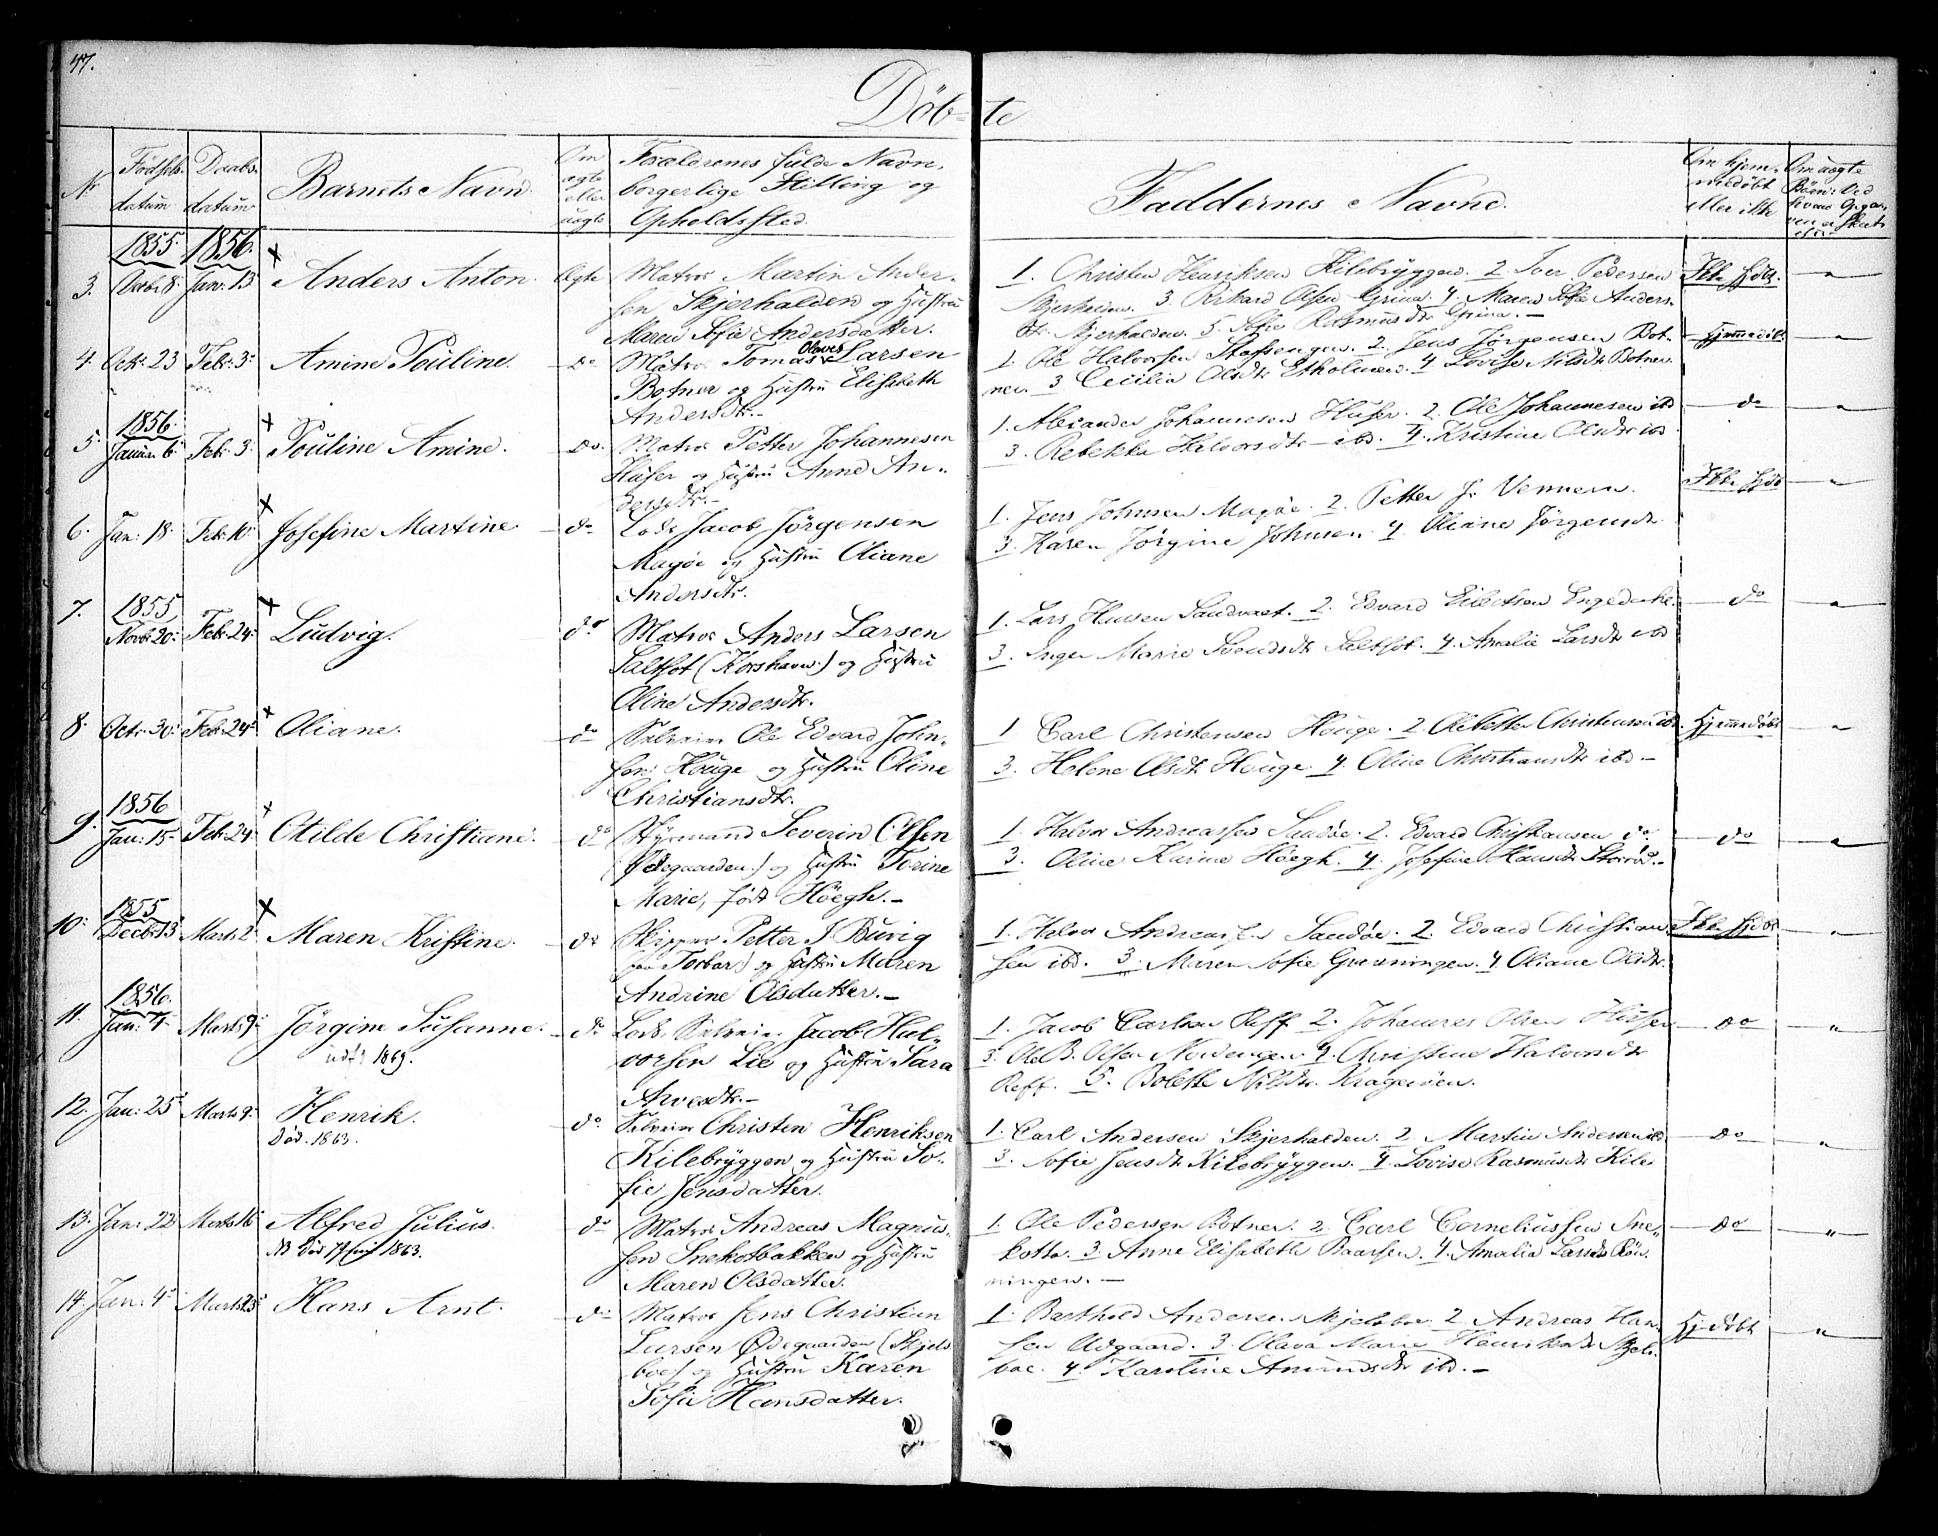 47.
Døbte
Nr
Fødsels-
datum
Daabs-
datum
Barnets Navn.
Om
ægte
eller
uægte
Forældrenes fulde Navn,
borgerlige Stilling og
Opholdssted.
Faddernes Navne.
Om hjem-
medøbt
eller ikke
Om uægte
Børn: Ved
hvem Opga-
ven er skeet
1855. 1856.
3. Octbr 8. Jan: 13 Anders Anton. Ægte Matros Martin Ander-
sen Skjerhalden og Hustru
Maren Sofie Andersdatter.
1. Christen Henriksen Kilebryggen. 2. Iver Pedersen
Skjerhalden. 3. Rikard Olsen Grina. 4. Maren Sofie Anders-
dtr. Skjerhalden. 5. Sofie Rasmusdtr Grina.—
Ikke Hjdbt. "
4. Octr. 23 Febr: 3. Amine Pouline. do Matros Tomas Olaves Larsen
Botner og Hustru Elisabeth
Andersdtr.—
1. Ole Halvorsen Stoffsengen. 2. Jens Jørgensen Bot-
ner. 3 Cecilia Olsdtr Etholmen. 4 Lovise Nilsdtr Botner.
Hjemmedøbt. "
1856.
5. Januar 6. Febr. 3. Pouline Amine. do. Matros Petter Johannesen
Huser og Hustru Anne An-
dersdtr.—
1. Alexander Johannesen Huser. 2. Ole Johannesen ibd
3. Rebekka Halvorsdtr — ibd. 4. Kristine Olsdtr ibd
do "
6. Jan: 18. Febr: 10. Josefine Martine do Lods Jacob Jørgensen
Magøe og Hustru Oliane
Andersdtr.
1. Jens Johnsen Magøe. 2. Petter J. Vennern.
3. Karen Jørgine Johnsen. 4. Oliane Jørgensdtr.
Ikke Hjdb "
1855.
7. Novb 20. Febr: 24. Ludvig. do Matros Anders Larsen
Saltsot (Korshavn.) og Hustru
Oline Andersdtr.
1. Lars Hansen Sandvaet. 2. Edvard Eilertsen
3. Inger Marie Svendsdtr Saltsot. 4. Amalie Larsdtr ibd
do "
8. Octr. 30. Febr. 24. Oliane. do Selveier Ole Edvard John-
sen: Houge og Hustru Oline
Christiansdtr.
1 Carl Christensen Houge. 2 Ole Petter Christensen ibd
3. Helene Olsdtr Houge. 4. Oline Christiansdtr ibd —
Hjemmedøbt "
1856
9. Jan: 15. Febr: 24. Otilde Christiane. do Styrmand Severin Olsen
(Ødegaarden.) og Hustru Torine
Marie, født Höegh.—
1. Halvor Andreassen Sandøe. 2. Edvard Christiansen do.
3. Oline Karine Höegh. 4. Josefine Hansdtr Storrød.—
do "
1855
10. Decb: 13 Marts 2. Maren Kristine. do Skipper Petter J. Buvig
(paa Torbar) og Hustru Maren
Andrine Olsdatter.—
1. Halvor Andreassen Sandøe. 2. Edvard Christian-
sen ibd. 3. Maren Sofie Grønningen. 4. Oliane Olsdtr.
Ikke Hjdbt "
1856.
11. Jan: 4. Marts 9. Jörgine Susanne. do Lods, Selveier, Jacob Hal-
vorsen Lie og Hustru Sara
Arvesdtr.—
udft 1869.
1. Jacob Carlsen Reff 2. Johannes Olsen Huser
3. Ole B. Olsen Nordengen. 4. Christine Halvorsdtr
Reff. 5. Bolette Nilsdtr. Kragerøen.
do "
12. Jan: 25. Marts 9. Henrik. do. Selveier Christen Henriksen
Kilebryggen og Hustru So-
fie Jensdatter.
Död. 1863.
1. Carl Andersen Skjerhalden. 2 Martin Andersen ibd
3. Sofie Jensdtr Kilebryggen. 4. Lovise Rasmusdtr Kile
do "
13. Jan: 22 Marts 16. Alfred Julius. do Matros Andreas Magnus-
sen Snekotbakken og Hustru
Maren Olsdatter.
NB Död 1863.
1. Ole Pedersen Botner. 2 Carl Corneliussen Sne-
kotta. 3 Anne Elisabeth Baarsen. 4. Amalia Larsdtr Røn-
ningen. —
do "
14. Jan: 4. Marts 23. Hans Arnt. do Matros Jens Christian
Larsen Ødegaarden (Skjels-
boe) og Hustru Karen
Sofie Hansdatter.
1. Barthold Andersen Skjelsboe. 2 Andreas Han-
sen Ødgaard. 3. Olava Marie Henriksdtr Skjels-
boe. 4. Karoline Amundsdtr ibd.—
Hj. døbt "